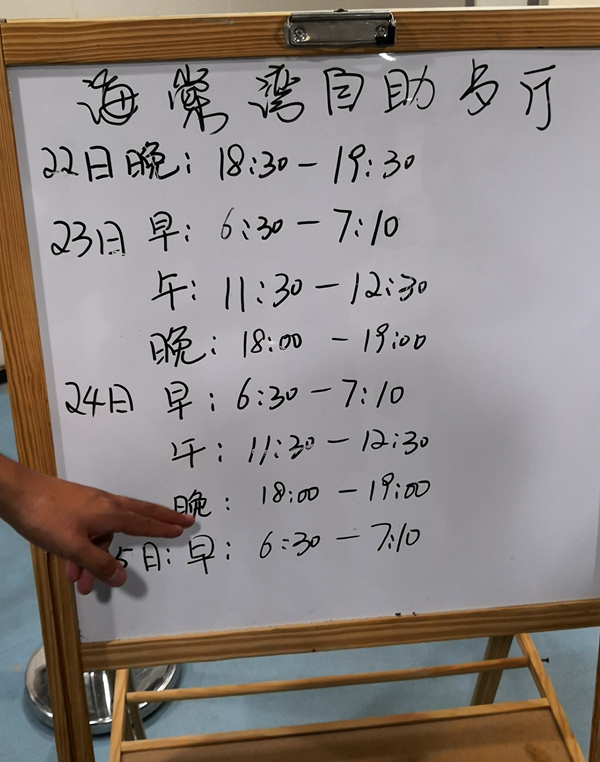 海棠湾自助歺厅
22日晚: 18:30-19:30
23日 早: 6:30-7:10
午: 11:30-12:30
晚: 18:00-19:00
24日 早: 6:30-7:10
午: 11:30-12:30
晚: 18:00-19:00
5日: 早: 6:30-7:10